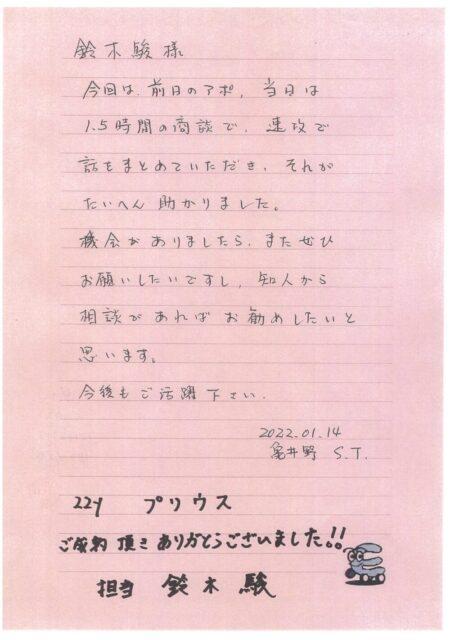 鈴木駿様
今回は、前日のアポ、当日は
1.5時間の商談で、速攻で
話をまとめていただき、それが
たいへん助かりました。
機会がありましたら、またぜひ
お願いしたいですし、知人から
相談があればお勧めしたいと
思います。
今後もご活躍下さい.
2022.01.14
亀井野 S.T.
22y プリウス
ご成約頂きありがとうございました!!
担当 鈴木駿